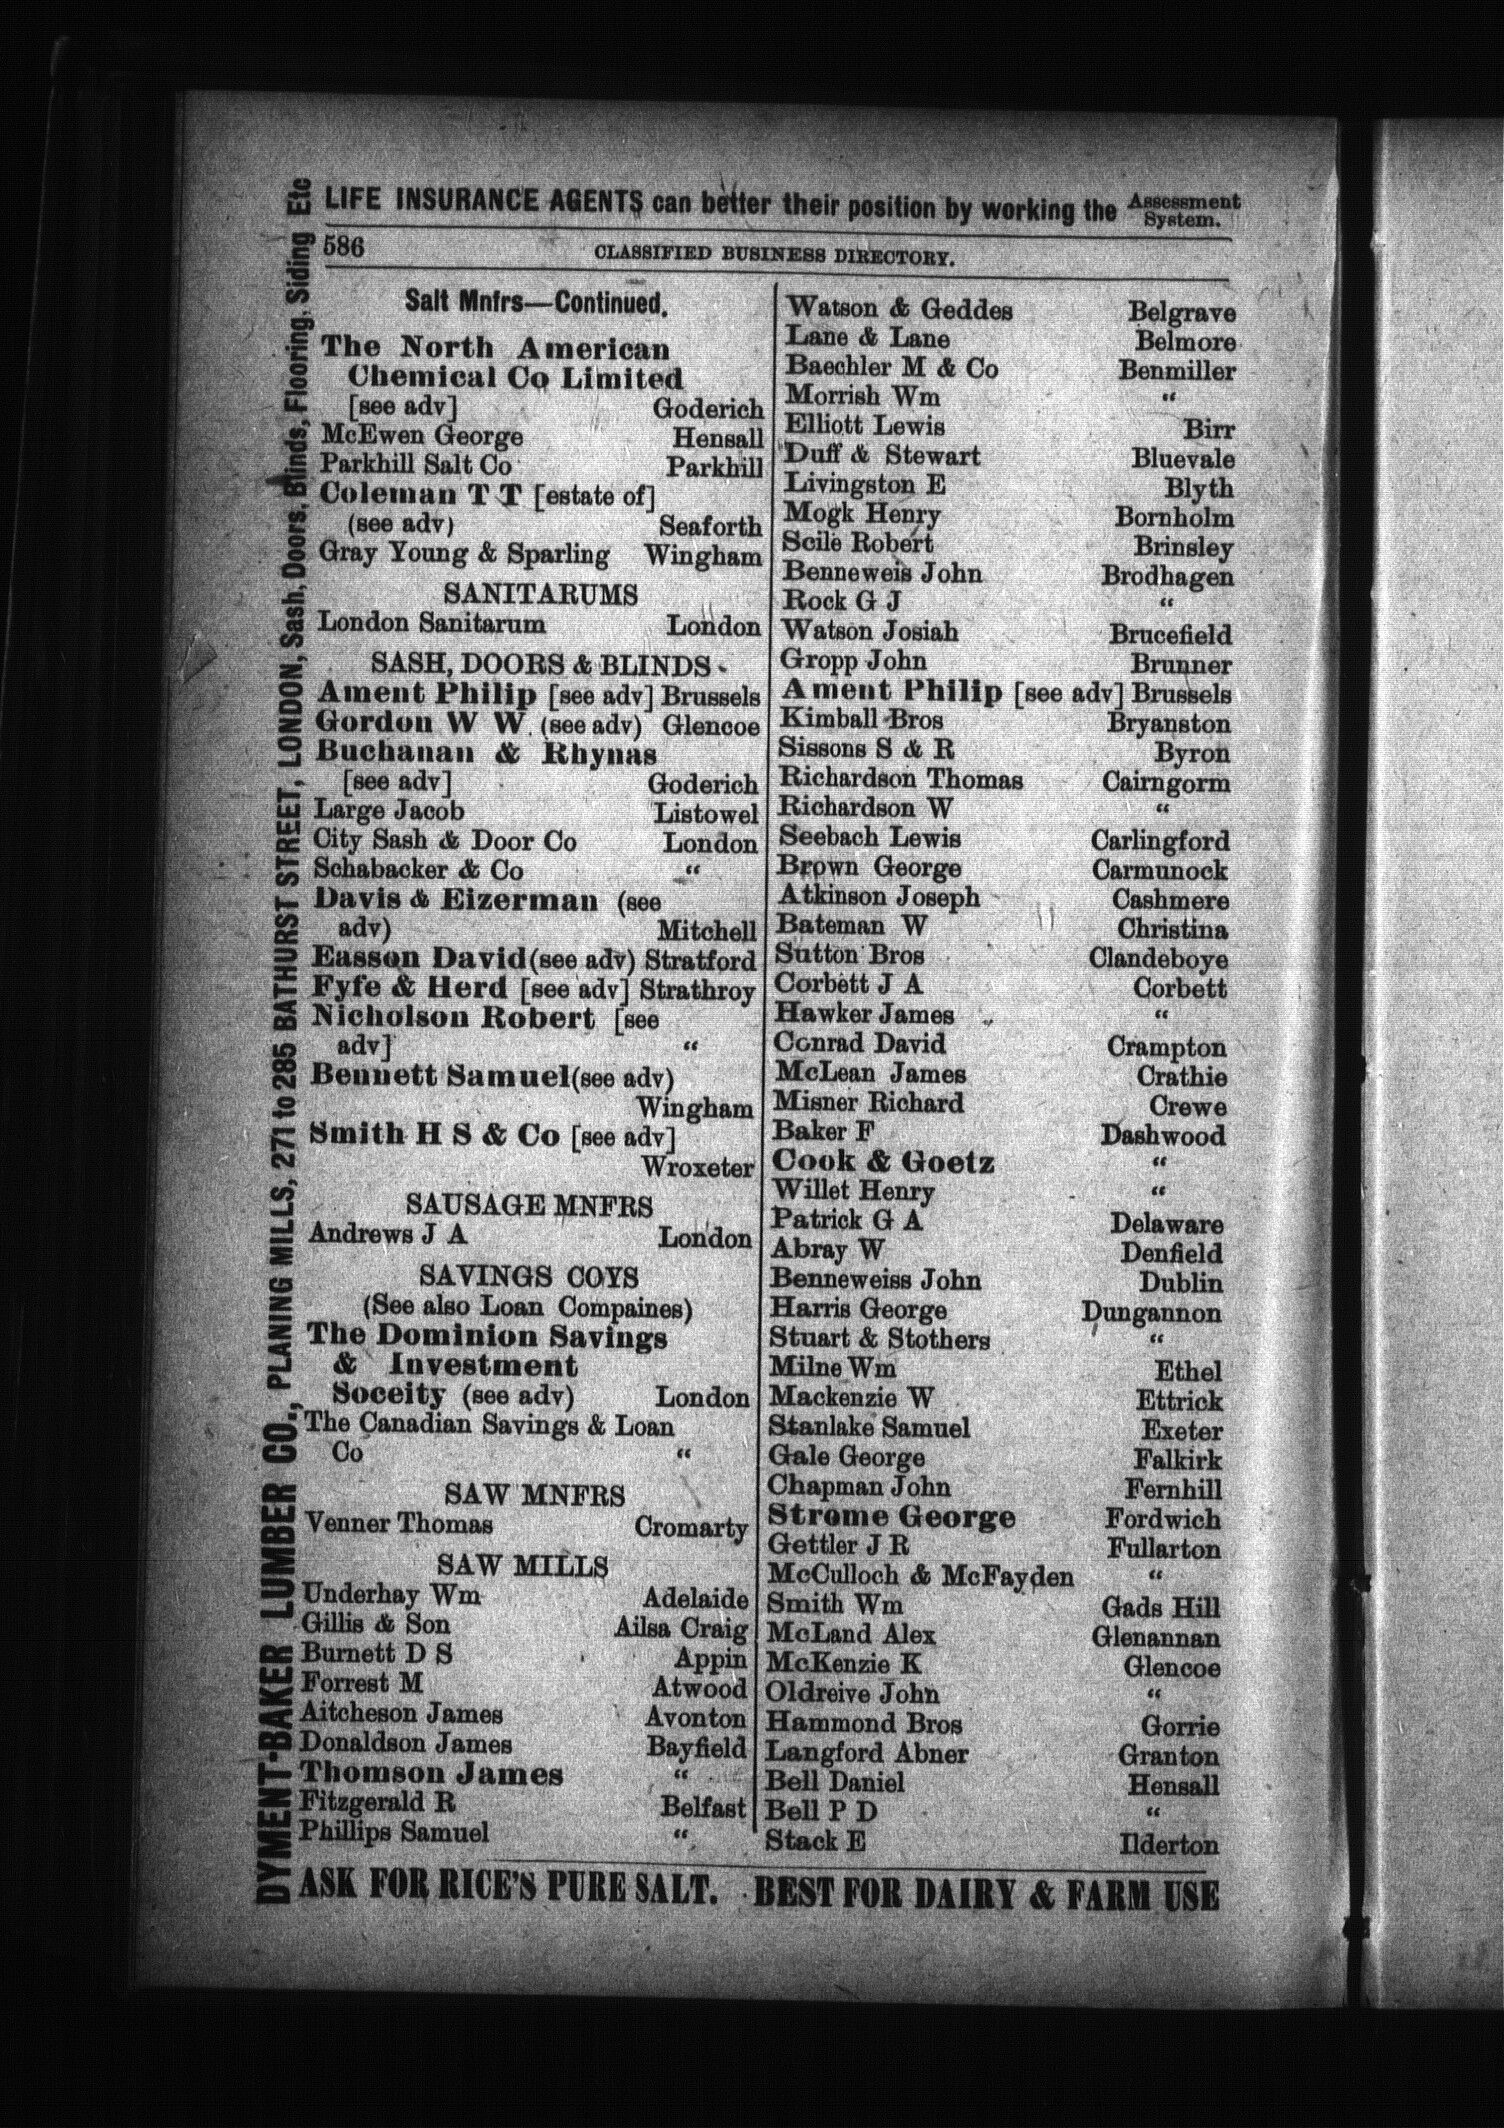 LIFE INSURANCE AGENTS can better their position by working the Assessment System.
586 CLASSIFIED BUSINESS DIRECTORY.
Salt Mnfrs—Continued.
The North American
Chemical Co Limited
[see adv] Goderich
McEwen George Hensall
Parkhill Salt Co Parkhill
Coleman T T [estate of]
(see adv) Seaforth
Gray Young & Sparling Wingham
SANITARUMS
London Sanitarum London
SASH, DOORS & BLINDS
Ament Philip [see adv] Brussels
Gordon W W (see adv) Glencoe
Buchanan & Rhynas
[see adv] Goderich
Large Jacob Listowel
City Sash & Door Co London
Schabacker & Co “
Davis & Eizerman (see
adv) Mitchell
Easson David (see adv) Stratford
Fyfe & Herd [see adv] Strathroy
Nicholson Robert [see
adv] “
Bennett Samuel (see adv)
Wingham
Smith H S & Co [see adv]
Wroxeter
SAUSAGE MNFRS
Andrews J A London
SAVINGS COYS
(See also Loan Compaines)
The Dominion Savings
& Investment
Soceity (see adv) London
The Canadian Savings & Loan
Co “
SAW MNFRS
Venner Thomas Cromarty
SAW MILLS
Underhay Wm Adelaide
Gillis & Son Ailsa Craig
Burnett D S Appin
Forrest M Atwood
Aitcheson James Avonton
Donaldson James Bayfield
Thomson James “
Fitzgerald R Belfast
Phillips Samuel “
Watson & Geddes Belgrave
Lane & Lane Belmore
Baechler M & Co Benmiller
Morrish Wm “
Elliott Lewis Birr
Duff & Stewart Bluevale
Livingston E Blyth
Mogk Henry Bornholm
Scile Robert Brinsley
Benneweis John Brodhagen
Rock G J “
Watson Josiah Brucefield
Gropp John Brunner
Ament Philip [see adv] Brussels
Kimball Bros Bryanston
Sissons S & R Byron
Richardson Thomas Cairngorm
Richardson W “
Seebach Lewis Carlingford
Brown George Carmunock
Atkinson Joseph Cashmere
Bateman W Christina
Sutton Bros Clandeboye
Corbett J A Corbett
Hawker James “
Conrad David Crampton
McLean James Crathie
Misner Richard Crewe
Baker F Dashwood
Cook & Goetz “
Willet Henry “
Patrick G A Delaware
Abray W Denfield
Benneweiss John Dublin
Harris George Dungannon
Stuart & Stothers “
Milne Wm Ethel
Mackenzie W Ettrick
Stanlake Samuel Exeter
Gale George Falkirk
Chapman John Fernhill
Strome George Fordwich
Gettler J R Fullarton
McCulloch & McFayden “
Smith Wm Gads Hill
McLand Alex Glenannan
McKenzie K Glencoe
Oldreive John “
Hammond Bros Gorrie
Langford Abner Granton
Bell Daniel Hensall
Bell P D “
Stack E Ilderton
ASK FOR RICE'S PURE SALT. BEST FOR DAIRY & FARM USE
DYMENT-BAKER LUMBER CO., PLANING MILLS, 271 to 285 BATHURST STREET, LONDON, Sash, Doors, Blinds, Flooring, Siding Etc